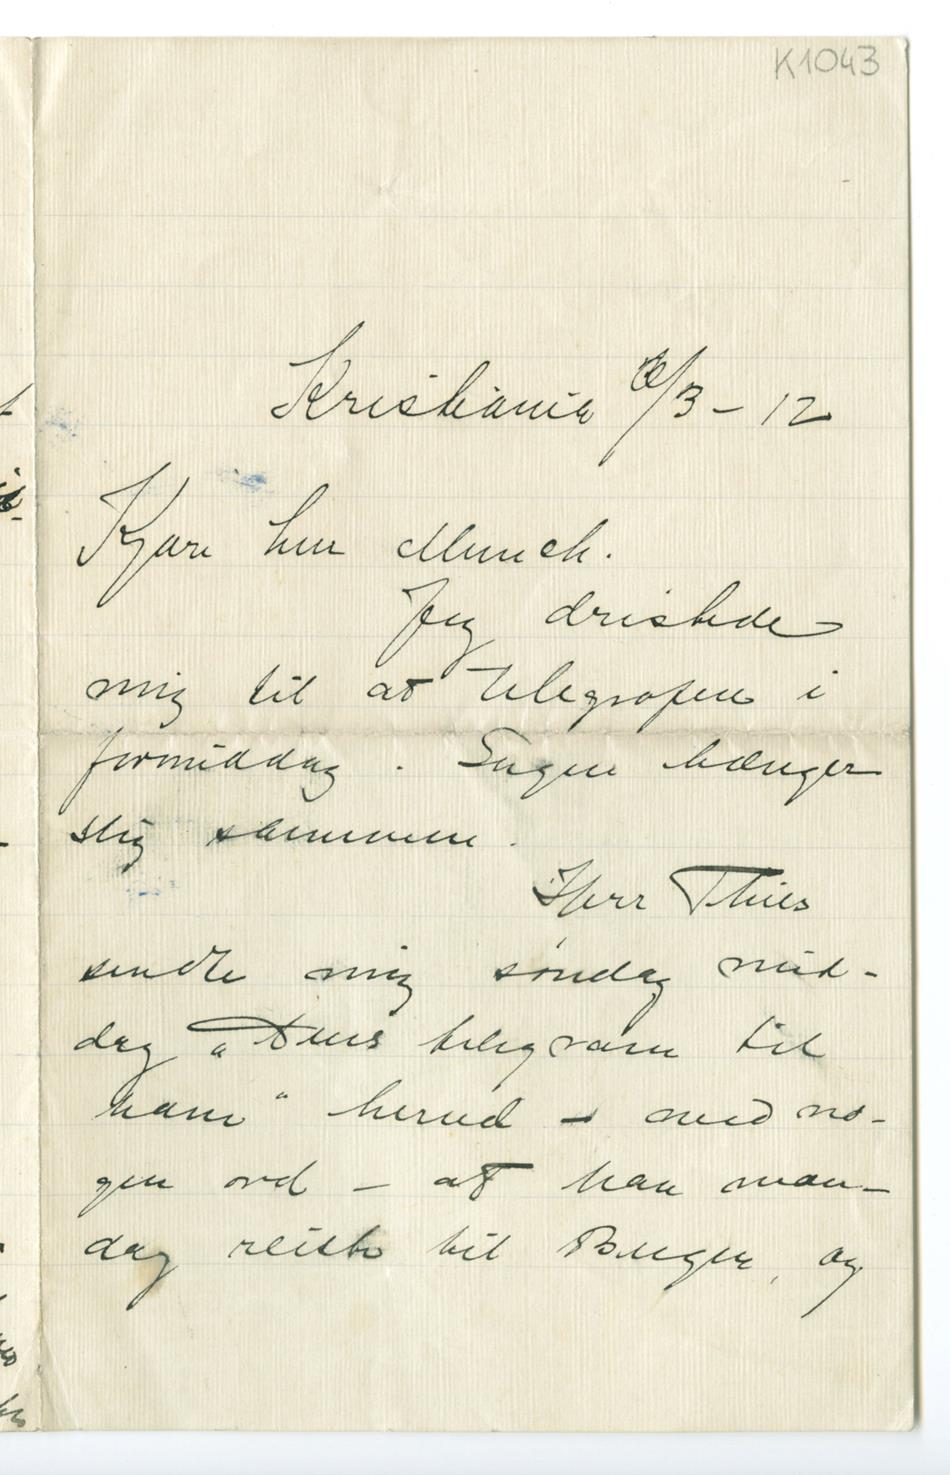 K1043
Kristiania 6/3 – 12
Kjære herr Munch.
Jeg dristede
mig til at telegrafere i
formiddag. Sagen hænger
slig sammen.
Herr Thiis
sendte mig søndag mid-
dag "Deres telegram til
ham" herned – med no-
gen ord – at han man-
dag reiste til Bergen, og